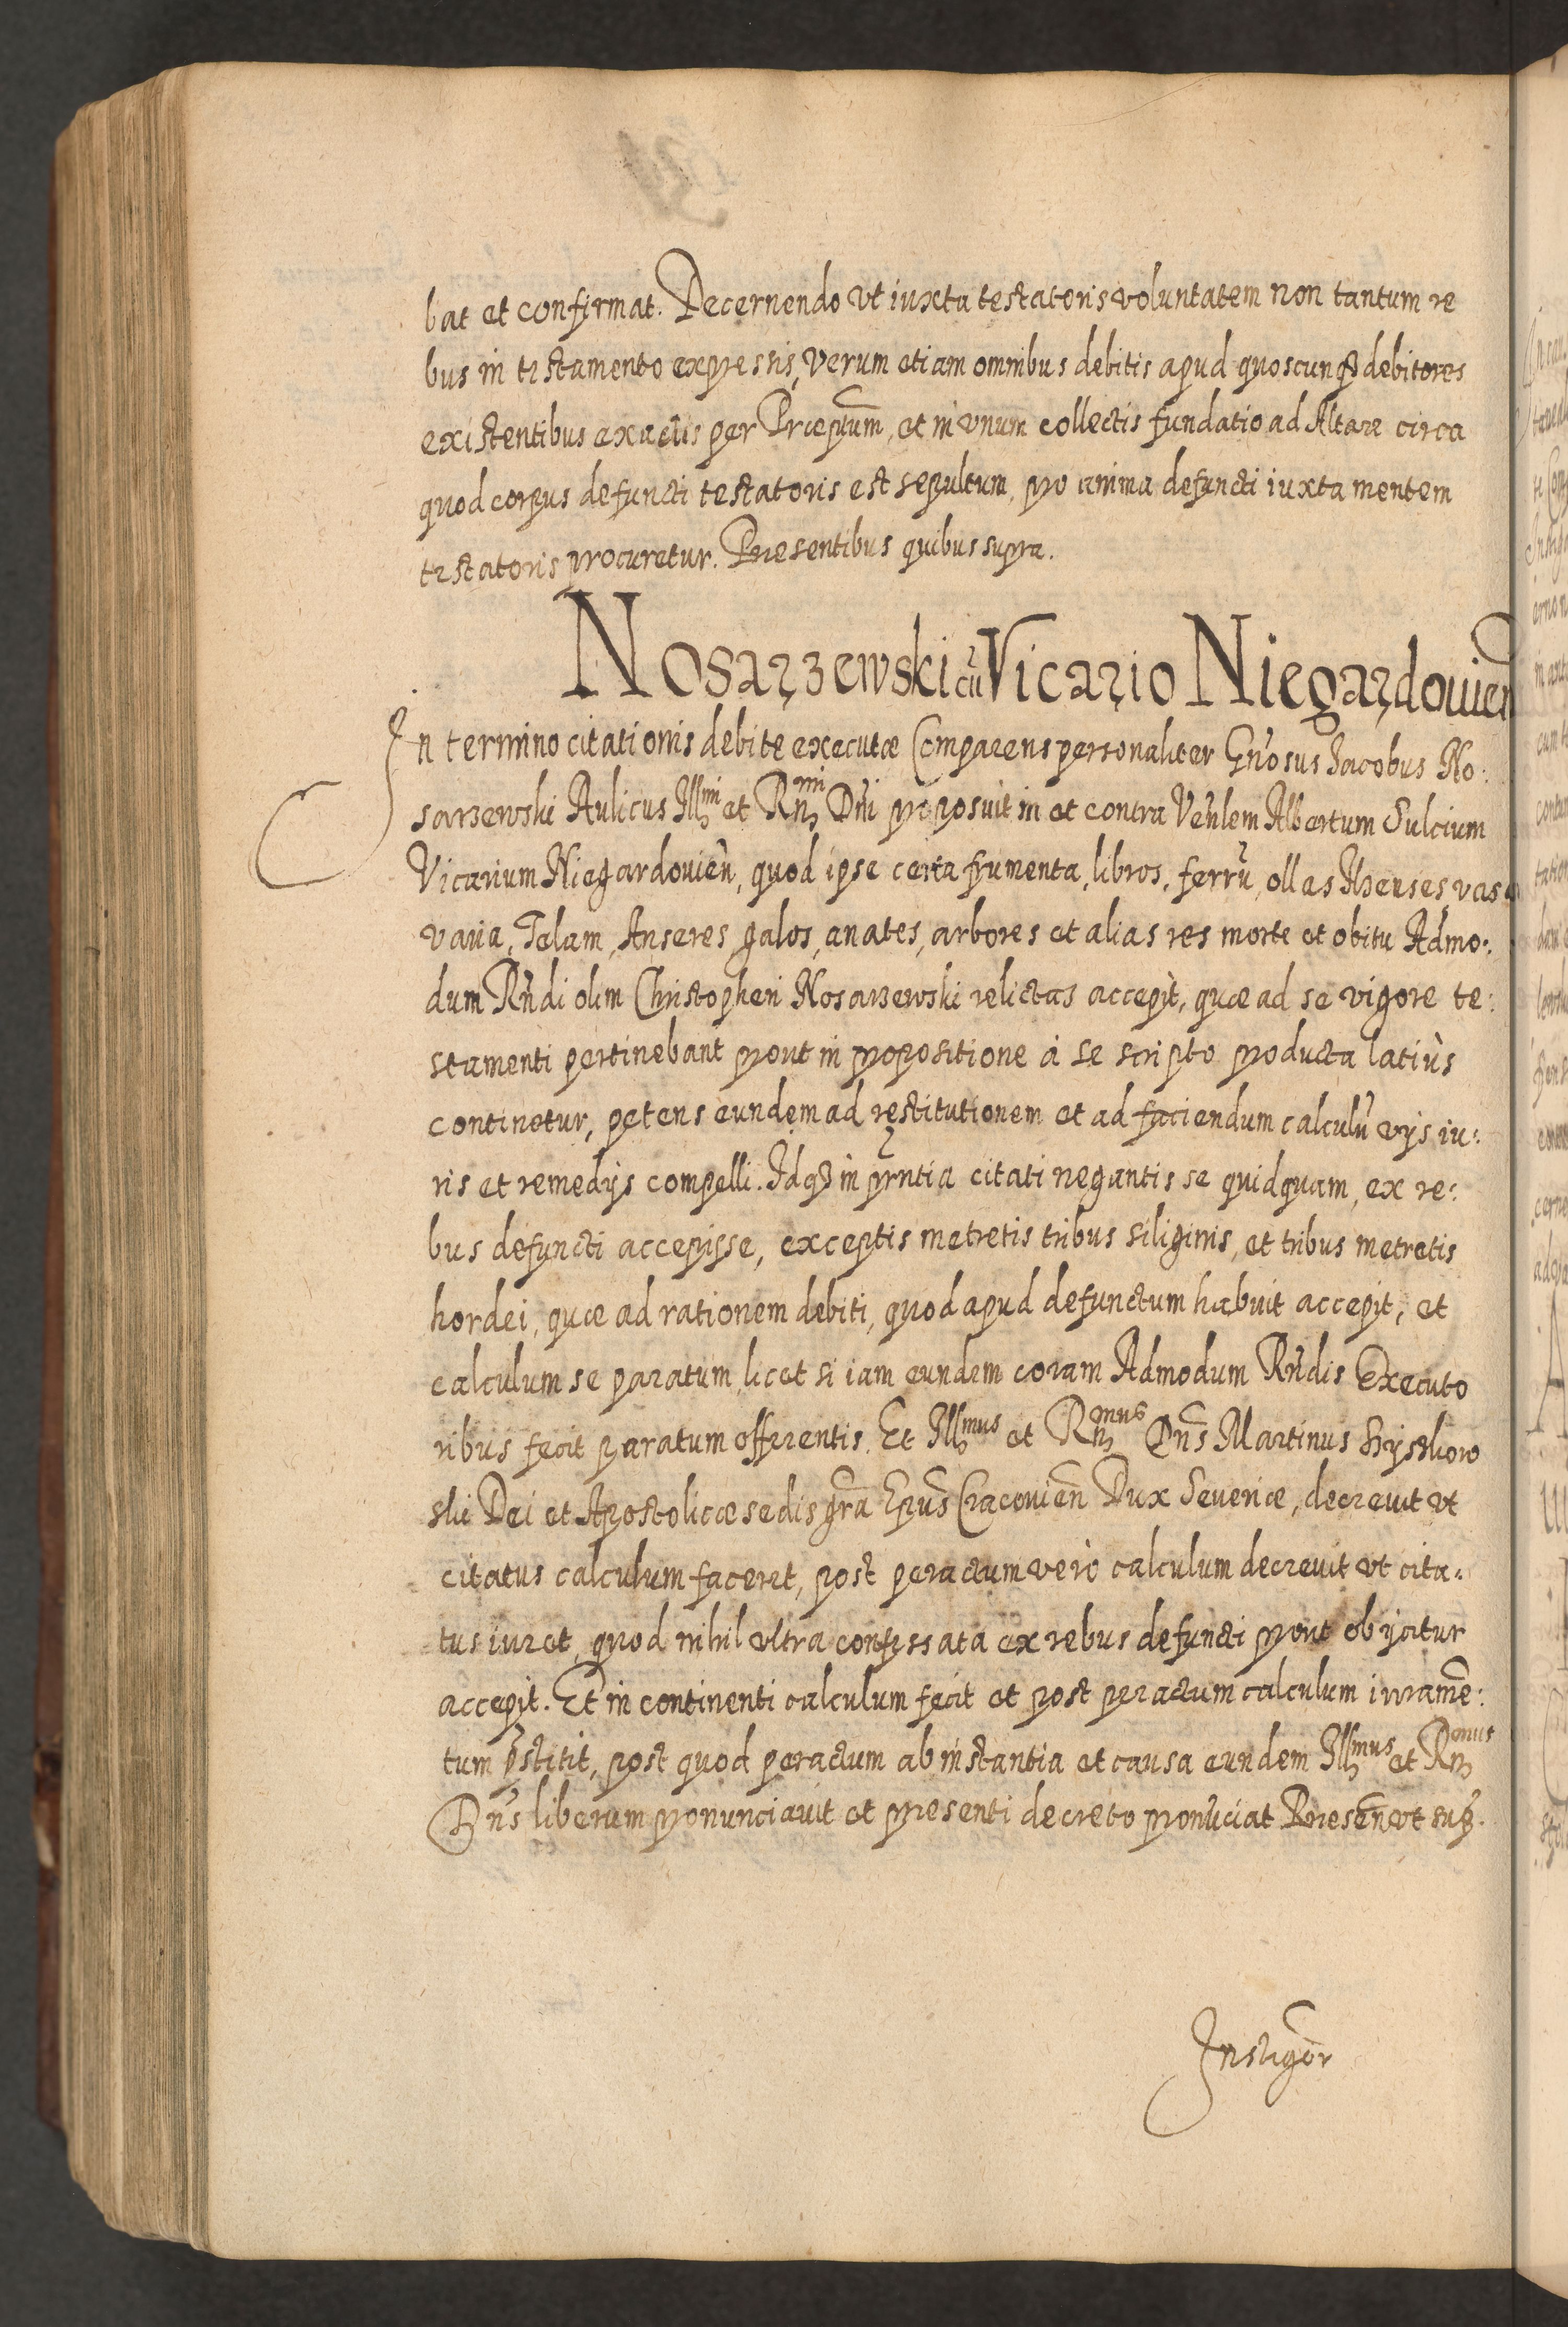 bat et confirmat. Decernendo vt iuxta testatoris voluntatem non tantum re
bus in testamento expressis, verum etiam omnibus debitis apud quoscunq₃ debitores
existentibus exactis per Præptum̄, et in vnum collectis fundatio ad Altare circa
quod corpus defuncti testatoris est sepultum, pro anima defuncti iuxta mentem
testatoris procuretur. Presentibus quibus supra.
Nosarzewski cū Vicario Niegardouien̄
In termino citationis debite executæ Comparens personaliter Gn̄osus Jacobus No:
sarzewski Aulicus Illmi et Rn̄mi Dn̄i proposuit in et contra Ven̄lem Albertum Sulcium
Vicarium Niegardouien̄, quod ipse certa frumenta, libros, ferrū, ollas Aheneses, vasa
varia, Telam, Anseres, galos, anates, arbores et alias res morte et obitu Admo:
dum Rn̄di olim Christopheri Nosarzewski relictas accepit, quæ ad se vigore te:
stamenti pertinebant prout in propositione à se scripto producta latiùs
continetur, petens eundem ad restitutionem et ad faciendum calculū vijs iu:
ris et remedijs compelli. Idq₃ in prn̄tia citati negantis se quidquam, ex re:
bus defuncti accepisse, exceptis metretis tribus siliginis, et tribus metretis
hordei, quæ ad rationem debiti, quod apud defunctum habuit accepit, et
calculum se paratum, licet si iam eundem coram Admodum Rn̄dis Executo
ribus fecit paratum offerentis. Et Illmus et Rn̄mus Dn̄s Martinus Szyszkow
ski Dei et Apostolicæ sedis gr̄a Epus̄ Cracouien̄ Dux Seueriæ, decreuit vt
citatus calculum faceret, post peractum verò calculum decreuit vt cita=
tus iuret, quod nihil vltra confessata ex rebus defuncti prout obijcitur
accepit. Et in continenti calculum fecit et post peractum calculum iuramē:
tum p̄stitit, post quod peractum ab instantia et causa eundem Illmus et Rn̄mus
Dn̄s liberum pronunciauit et presenti decreto pronūciat Presen̄ vt sup̄.
Instigōr